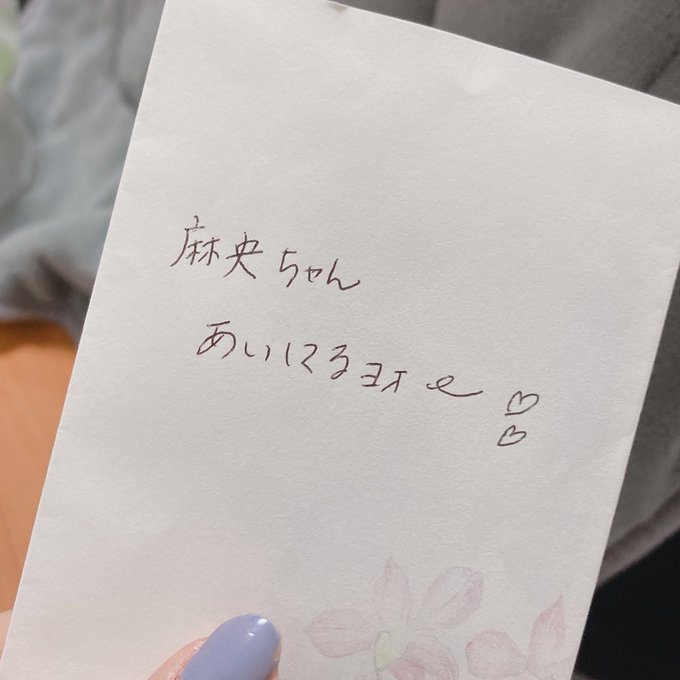 麻央ちゃん
あいしてるヨォ〜♡♡